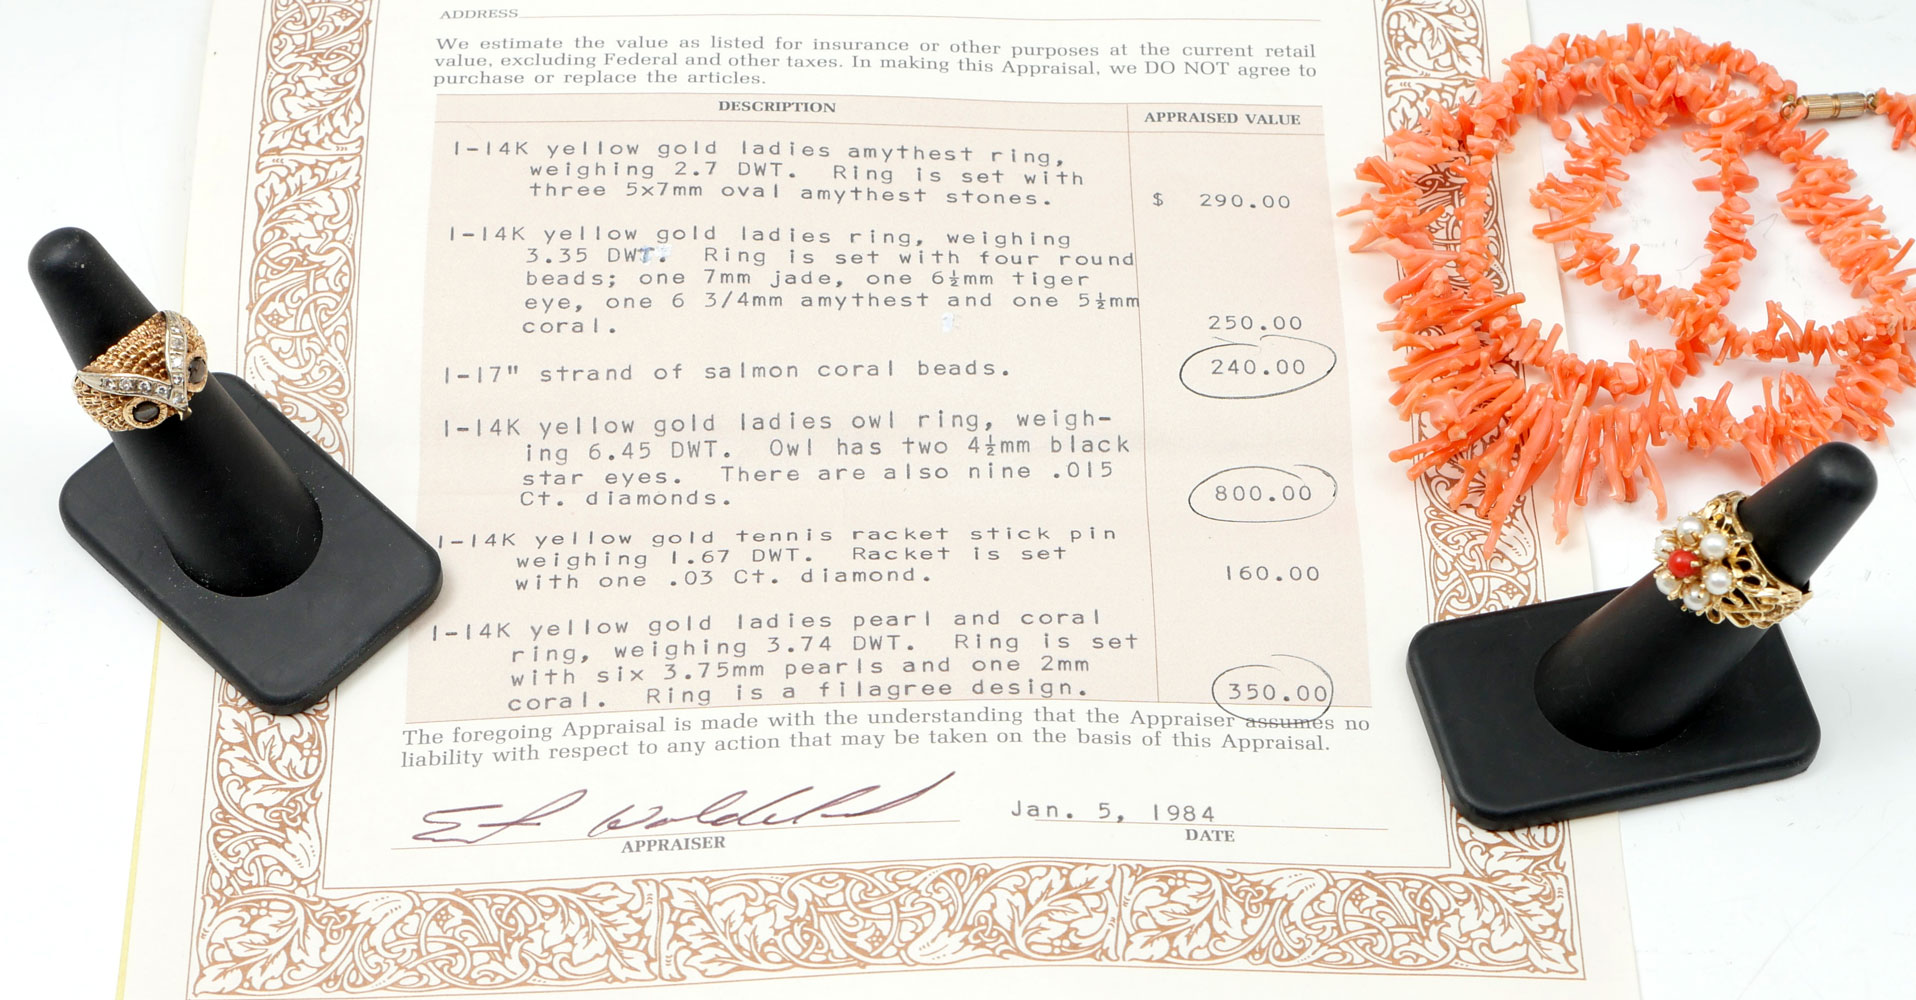 ADDRESS
We estimate the value as listed for insurance or other purposes at the current retail
value, excluding Federal and other taxes. In making this Appraisal, we DO NOT agree to
purchase or replace the articles.
DESCRIPTION
APPRAISED VALUE
1-14K yellow gold ladies amythest ring,
weighing 2.7 DWT. Ring is set with
three 5x7mm oval amythest stones.
$ 290.00
1-14K yellow gold ladies ring, weighing
3.35 DWT. Ring is set with four round
beads; one 7mm jade, one 6½mm tiger
eye, one 6 3/4mm amythest and one 5½mm
coral.
250.00
1-17" strand of salmon coral beads.
240.00
1-14K yellow gold ladies owl ring, weigh-
ing 6.45 DWT. Owl has two 4½mm black
star eyes. There are also nine .015
Ct. diamonds.
800.00
1-14K yellow gold tennis racket stick pin
weighing 1.67 DWT. Racket is set
with one .03 Ct. diamond.
160.00
1-14K yellow gold ladies pearl and coral
ring, weighing 3.74 DWT. Ring is set
with six 3.75mm pearls and one 2mm
coral. Ring is a filagree design.
350.00
The foregoing Appraisal is made with the understanding that the Appraiser assumes no
liability with respect to any action that may be taken on the basis of this Appraisal.
Jan. 5, 1984
APPRAISER
DATE